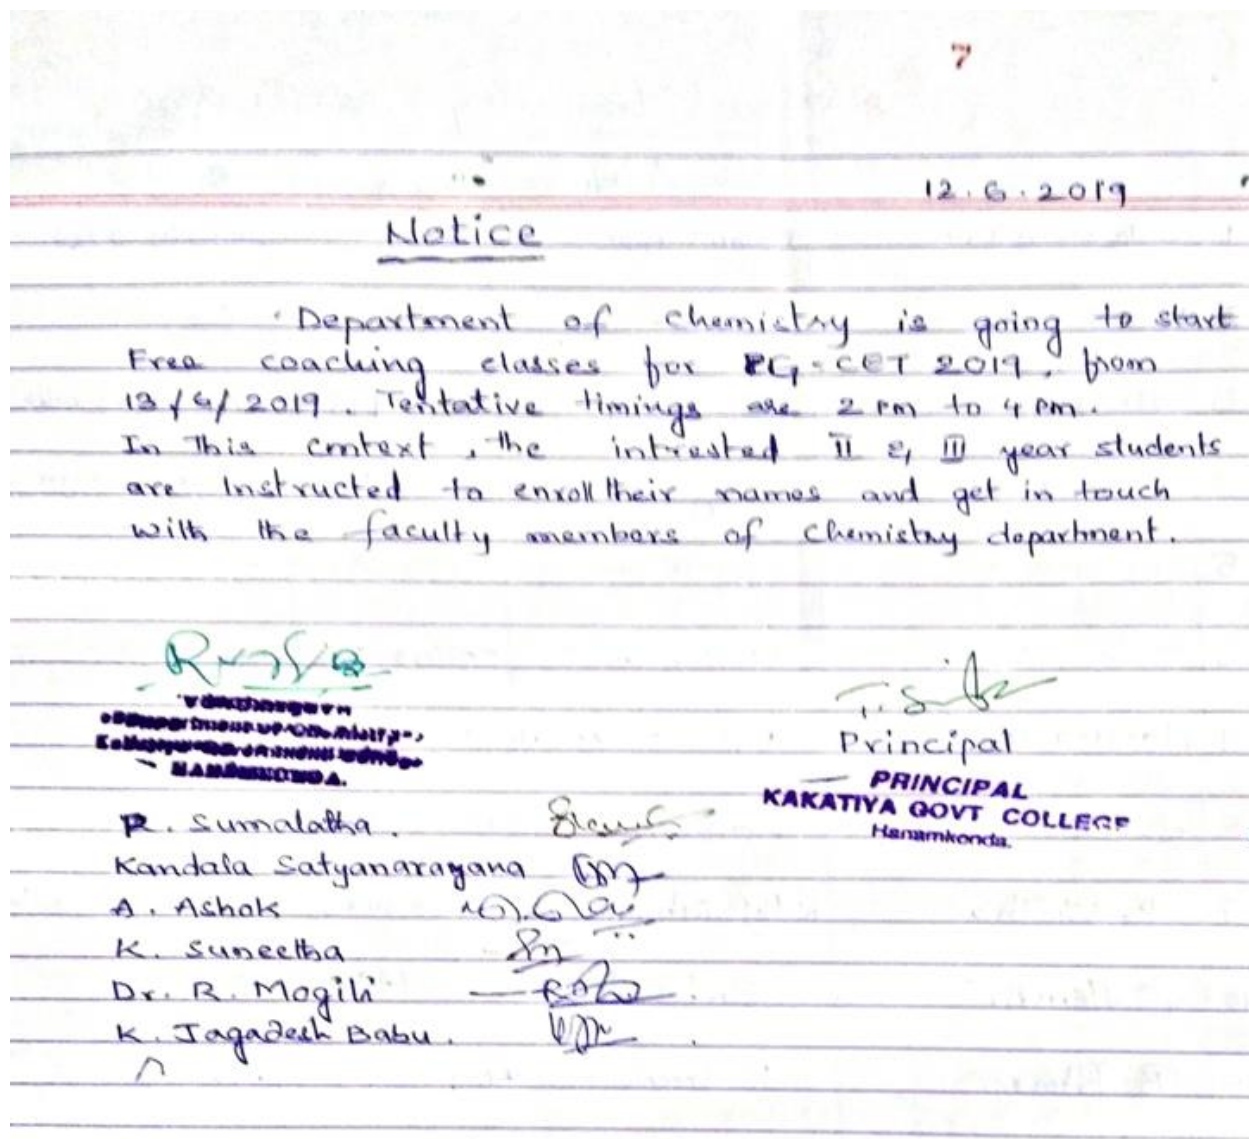 7
12.6.2019
Notice
Department of chemistry is going to start
Free coaching classes for PG-CET 2019, from
13/6/2019. Tentative timings are 2 pm to 4 pm.
In This context, the intrested II & III year students
are Instructed to enroll their names and get in touch
with the faculty members of chemistry department.
Principal
PRINCIPAL
KAKATIYA GOVT COLLEGE
Hanamkonda.
HANAMKONDA.
R. Sumalatha.
Kandala Satyanarayana
A. Ashok
K. Suneetha
Dr. R. Mogili
K. Jagadesh Babu.